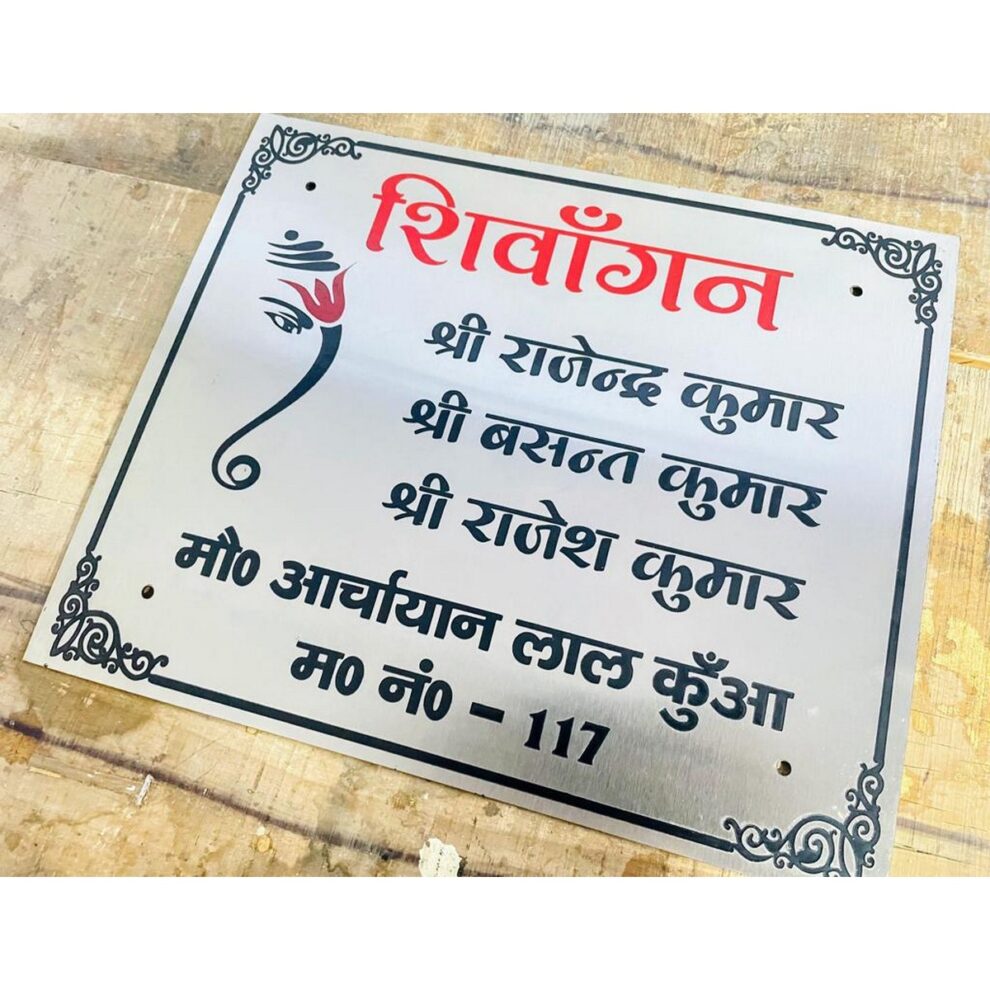 शिवाँगन
श्री राजेन्द्र कुमार
श्री बसन्त कुमार
श्री राजेश कुमार
मौ० आर्चायान लाल कुँआ
म० नं० - 117